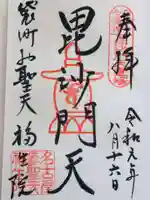 奉拝
令和元年
八月十六日
毘沙門天
袋町お聖天
福生院